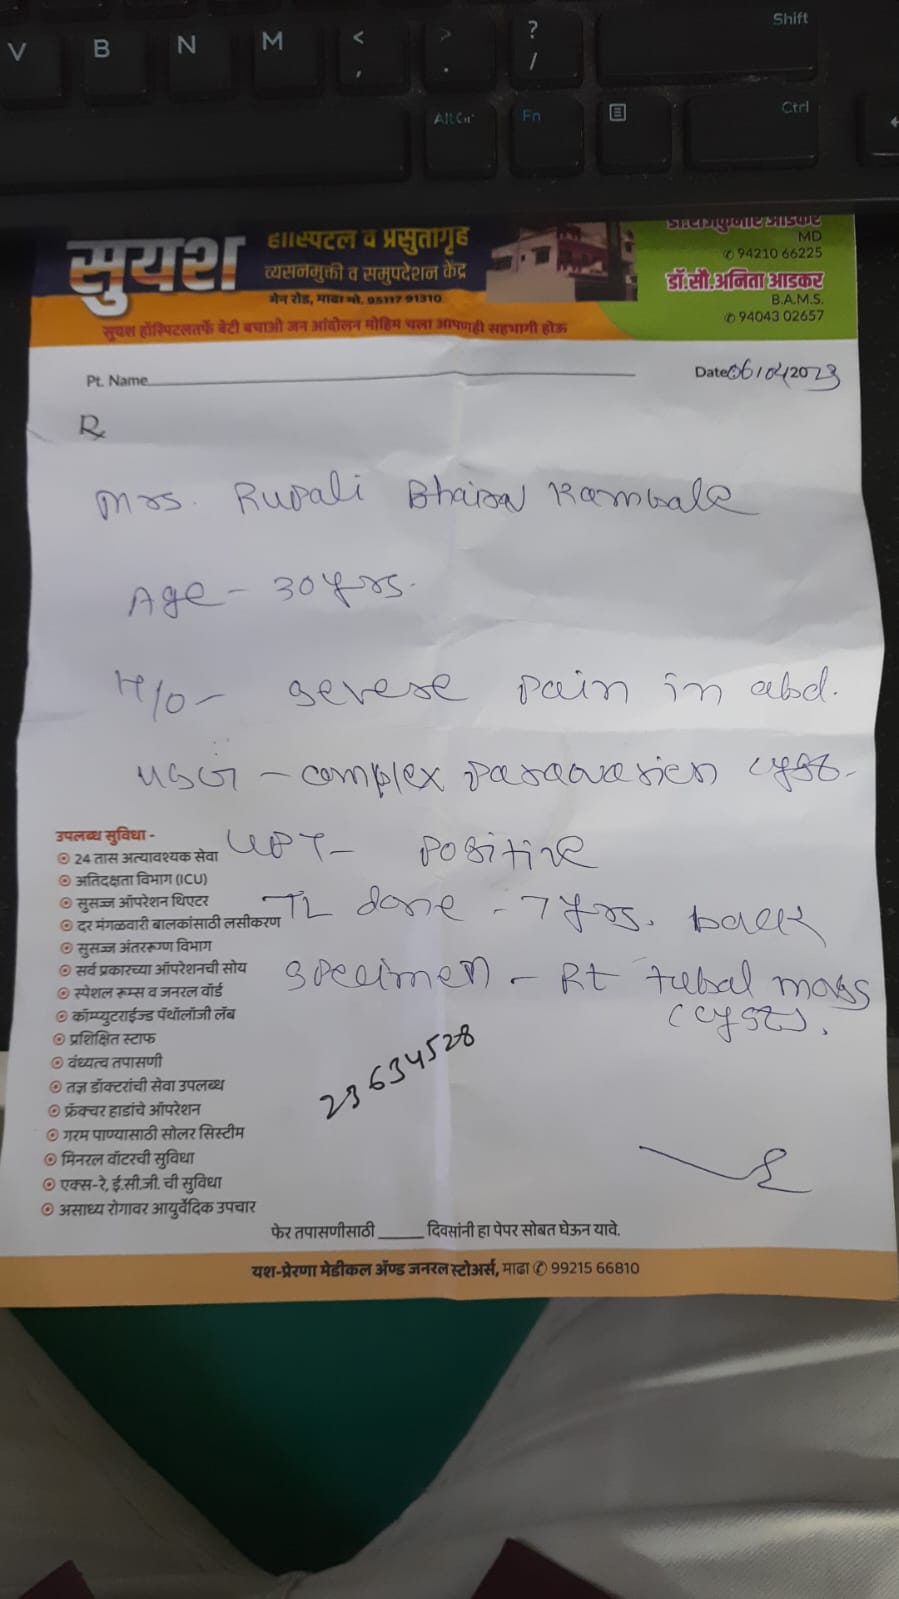 V B N M < , > . ? / Shift
Alt Gr Fn Ctrl
सुयश
हॉस्पिटल व प्रसुतीगृह
व्यसनमुक्ती व समुपदेशन केंद्र
मेन रोड, माढा मो. 95117 91310
सुयश हॉस्पिटलतर्फे बेटी बचाओ जन आंदोलन मोहिम चला आपणही सहभागी होऊ
डॉ.राजकुमार आडकर
MD
✆ 94210 66225
डॉ.सौ.अनिता आडकर
B.A.M.S.
✆ 94043 02657
Pt. Name
Date 06/04/2023
Rx
Mrs. Rupali Kambale
Age - 30 yrs.
H/O - severe pain in abd.
USG - complex paraovarien cyst.
UPT - positive
TL done - 7 yrs. back
specimen - Rt tubal mass
(cyst).
23634528
उपलब्ध सुविधा -
24 तास अत्यावश्यक सेवा
अतिदक्षता विभाग (ICU)
सुसज्ज ऑपरेशन थिएटर
दर मंगळवारी बालकांसाठी लसीकरण
सुसज्ज अंतररूग्ण विभाग
सर्व प्रकारच्या ऑपरेशनची सोय
स्पेशल रूम्स व जनरल वॉर्ड
कॉम्प्युटराईज्ड पॅथॉलॉजी लॅब
प्रशिक्षित स्टाफ
वंध्यत्व तपासणी
तज्ञ डॉक्टरांची सेवा उपलब्ध
फ्रॅक्चर हाडांचे ऑपरेशन
गरम पाण्यासाठी सोलर सिस्टीम
मिनरल वॉटरची सुविधा
एक्स-रे, ई.सी.जी. ची सुविधा
असाध्य रोगावर आयुर्वेदिक उपचार
फेर तपासणीसाठी _____ दिवसांनी हा पेपर सोबत घेऊन यावे.
यश-प्रेरणा मेडीकल अ‍ॅण्ड जनरल स्टोअर्स, माढा ✆ 99215 66810